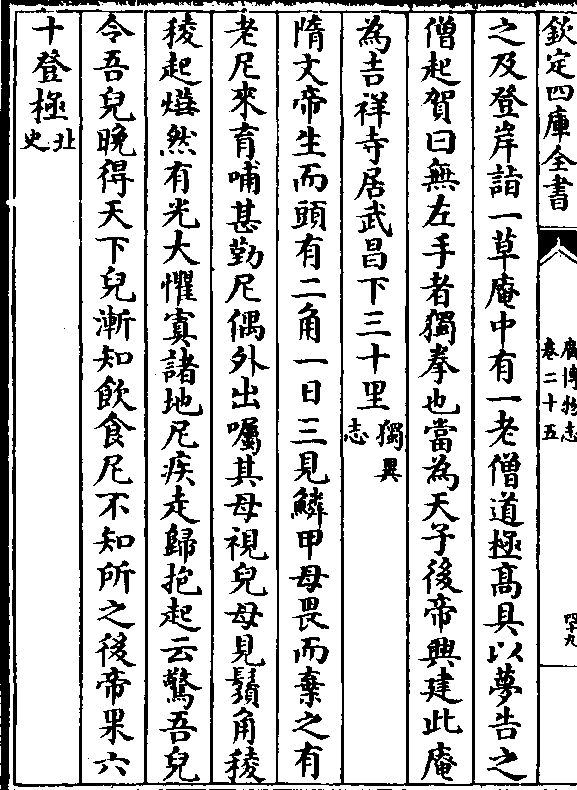 欽定四庫全書
廣博物志
卷二十五
四十九
之及登岸詣一草庵中有一老僧道極髙具以夢告之
僧起賀曰無左手者獨拳也當為天子後帝興建此庵
為吉祥寺居武昌下三十里獨異志
隋文帝生而頭有二角一日三見鱗甲母畏而棄之有
老尼來育哺甚勤尼偶外出囑其母視兒母見鬚角稜
稜起熾然有光大懼寘諸地尼疾走歸抱起云驚吾兒
令吾兒晩得天下兒漸知飲食尼不知所之後帝果六
十登極北史